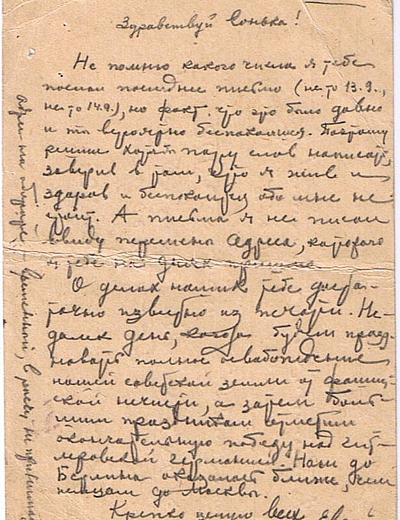 Здравствуй Сонька!
Не помню какого числа я тебе
послал последнее письмо (не то 13.9.,
не то 14.9), но факт, что это было давно
и ты вероятно беспокоишься. Поэтому
решил хоть пару слов написать,
заверив в том, что я жив и
здоров и беспокоиться обо мне не
стоит. А письма я не писал
ввиду перемены адреса, которого
я тебе на днях
О делах наших тебе доста-
точно известно из печати. Не-
далек день, когда будем празд-
новать полное освобождение
нашей советской земли от фашист-
ской нечисти, а затем боль-
шим праздником отметим
окончательную победу над гит-
леровской Германией. Нам до
Берлина оказалось ближе, чем
немцам до Москвы.
Крепко целую всех
Адрес на обороте - временный,